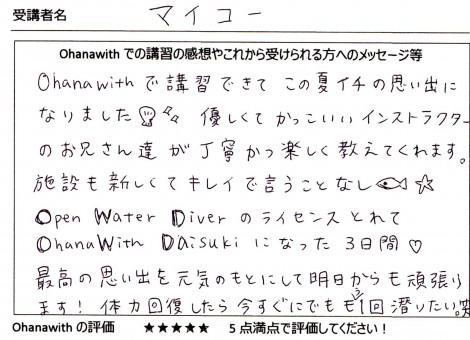 受講者名 マイコー
Ohanawith での講習の感想やこれから受けられる方へのメッセージ等
Ohanawithで講習できて この夏イチの思い出に
なりました 優しくてかっこいい インストラクター
のお兄さん達が丁寧かつ楽しく教えてくれます。
施設も新しくてキレイで言うことなし ☆
Open Water Diver のライセンスとれて
OhanaWith Daisuki になった 3日間 ♡
最高の思い出を元気のもとにして明日からも頑張り
ます! 体力回復したら今すぐにでももう1回潜りたい。笑
Ohanawith の評価 ★★★★★ 5点満点で評価してください!